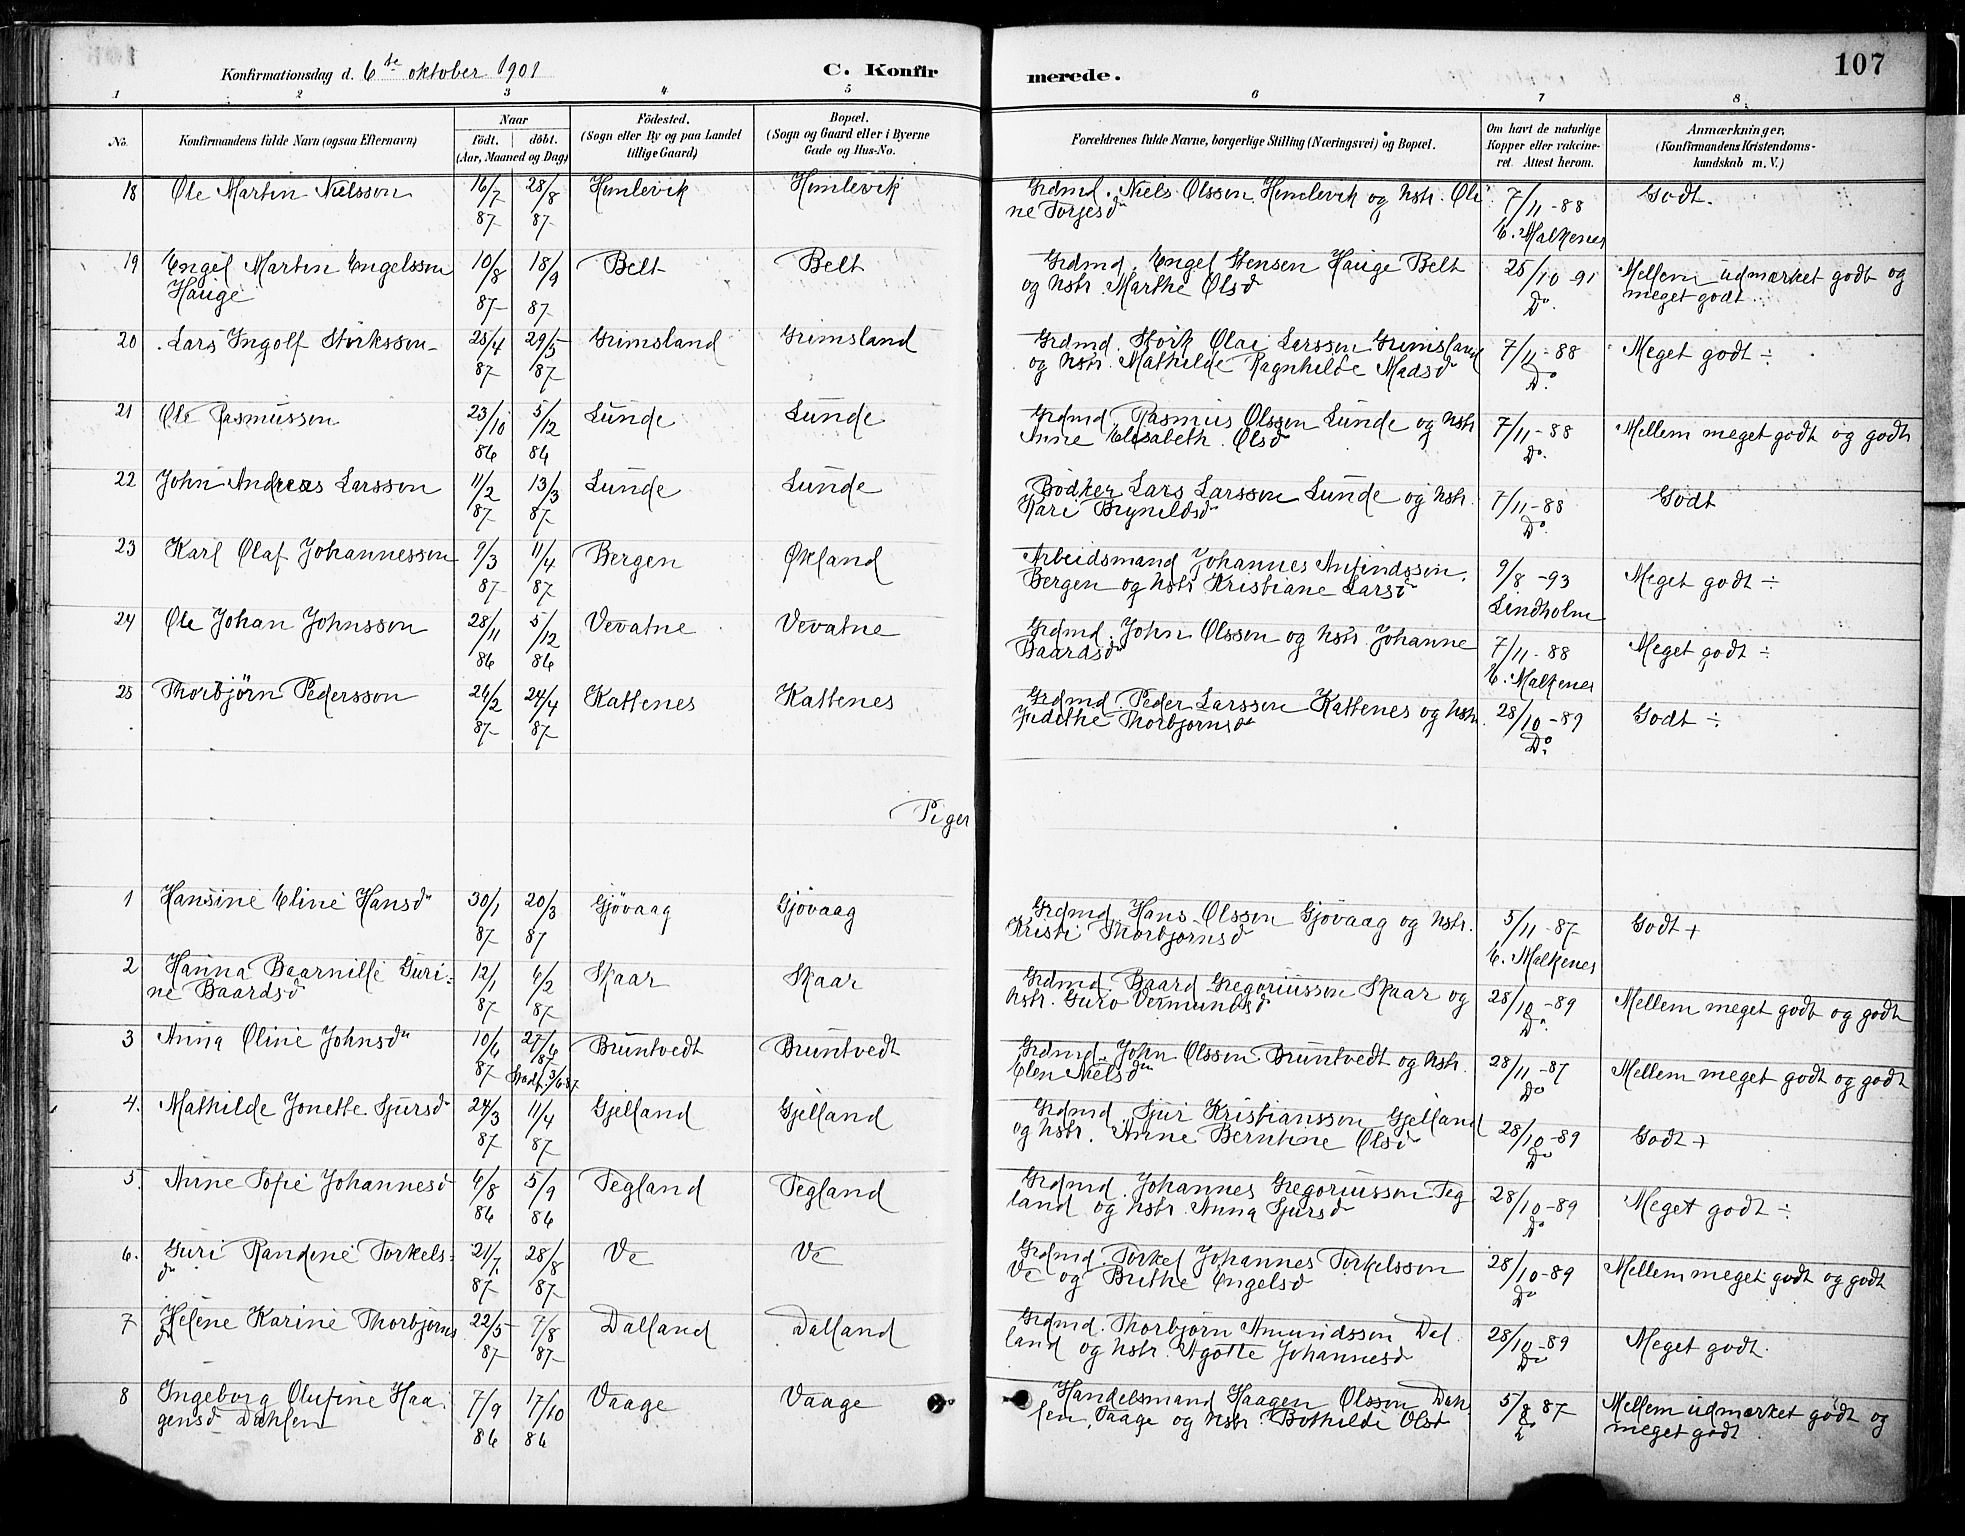 Konfirmationsdag d. 6te oktober 1901
C. Konfirmerede.
107
1 2 3 4 5 6 7 8
No.
Konfirmandens fulde Navn (ogsaa Efternavn)
Naar
födt. döbt.
(Aar, Maaned og Dag)
Födested.
(Sogn eller By og paa Landet
tillige Gaard)
Bopæl.
(Sogn og Gaard eller i Byerne
Gade og Hus-No.
Forældrenes fulde Navne, borgerlige Stilling (Næringsvei) og Bopæl.
Om havt de naturlige
Kopper eller vakcine-
ret. Attest herom.
Anmærkninger,
(Konfirmandens Kristendoms-
kundskab m. V.)
18 Ole Martin Nielsson 16/7 87 28/8 87 Himlevik Himlevik
Grdmd. Niels Olsson Himlevik og hstr. Oli
ne Torjesd
7/11-88
C. Malkenes
Godt.
19 Engel Martin Engelsson
Hauge
10/8 87 18/9 87 Belt Belt
Grdmd. Engel Stensen Hauge Belt
og hstr. Marthe Olsd
25/10-91
Do.
Mellem udmærket godt og
meget godt
20 Lars Ingolf Störksson 25/4 87 29/5 87 Grimsland Grimsland
Grdmd. Störk Olai Larsson Grimsland
og hstr. Mathilde Ragnhilde Madsd
7/11-88
Do.
Meget godt ÷
21 Ole Rasmusson 23/10 86 5/12 86 Lunde Lunde
Grdmd Rasmus Olsson Lunde og hstr
Anne Elisabeth Olsd
7/11-88
Do.
Mellem meget godt og godt
22 John Andreas Larsson 11/2 87 13/3 87 Lunde Lunde
Bödker Lars Larsson Lunde og hstr.
Kari Brynildsd
7/11-88
Do.
Godt
23 Karl Olaf Johannesson 9/3 87 11/4 87 Bergen Økland
Arbeidsmand Johannes Anfindsson
Bergen og hstr Kristiane Larsd
9/8-93
Lindholm
Meget godt ÷
24 Ole Johan Johnsson 28/11 86 5/12 86 Vevatne Vevatne
Grdmd. John Olsson og hstr Johanne
Baardsd
7/11-88
C. Malkenes
Meget godt ÷
25 Thorbjörn Pedersson 26/2 87 24/4 87 Kattenes Kattenes
Grdmd Peder Larsson Kattenes og hstr.
Judithe Thorbjornsd
28/10-89
Do.
Godt ÷
Piger
1 Hansine Eline Hansd 30/1 87 20/3 87 Gjövaag Gjövaag
Grdmd. Hans Olsson Gjövaag og hstr.
Kristi Thorbjornsd
5/11-87
C. Malkenes
Godt +
2 Hanna Baarnille Guri-
ne Baardsd
12/1 87 6/2 87 Skaar Skaar
Grdmd. Baard Gregoriusson Skaar og
hstr. Guro Vermundsd
28/10-89
Do.
Mellem meget godt og godt
3 Anna Oline Johnsd 10/6 87 Bruntvedt Bruntvedt
Grdmd. John Olsson Bruntvedt og hstr.
Elen Nielsd
28/11-87
Do
Mellem meget godt og godt
4. Mathilde Jonette Sjursd 24/3 87 11/4 87 Gjelland Gjelland
Grdmd. Sjur Kristiansson Gjelland
og hstr. Anne Berntine Olsd
28/10-89
Do
Godt +
5. Anne Sofie Johannesd 6/8 86 5/9 86 Tegland Tegland
Grdmd. Johannes Gregoriusson Teg
land og hstr. Anna Sjursd
28/10-89
Do
Meget godt ÷
6. Guri Randine Torkels-
d
21/7 87 28/8 87 Ve Ve
Grdmd. Torkel Johannes Torkelsson
Ve og Brithe Engelsd
28/10-89
Do
Mellem meget godt og godt
7 Helene Karine Thorbjørns
d
22/5 87 7/8 87 Dalland Dalland
Grdmd. Thorbjørn Amundsson Dal
land og hstr. Agotte Johannesd
28/10-89
Do
Meget godt.
8 Ingeborg Olufine Haa
gensd Dahlen
7/9 86 17/10 86 Vaage Vaage
Handelsmand Haagen Olsson Dah
len, Vaage og hstr. Bothilde Olsd
5/8 87
Mellem udmærket godt og
meget godt